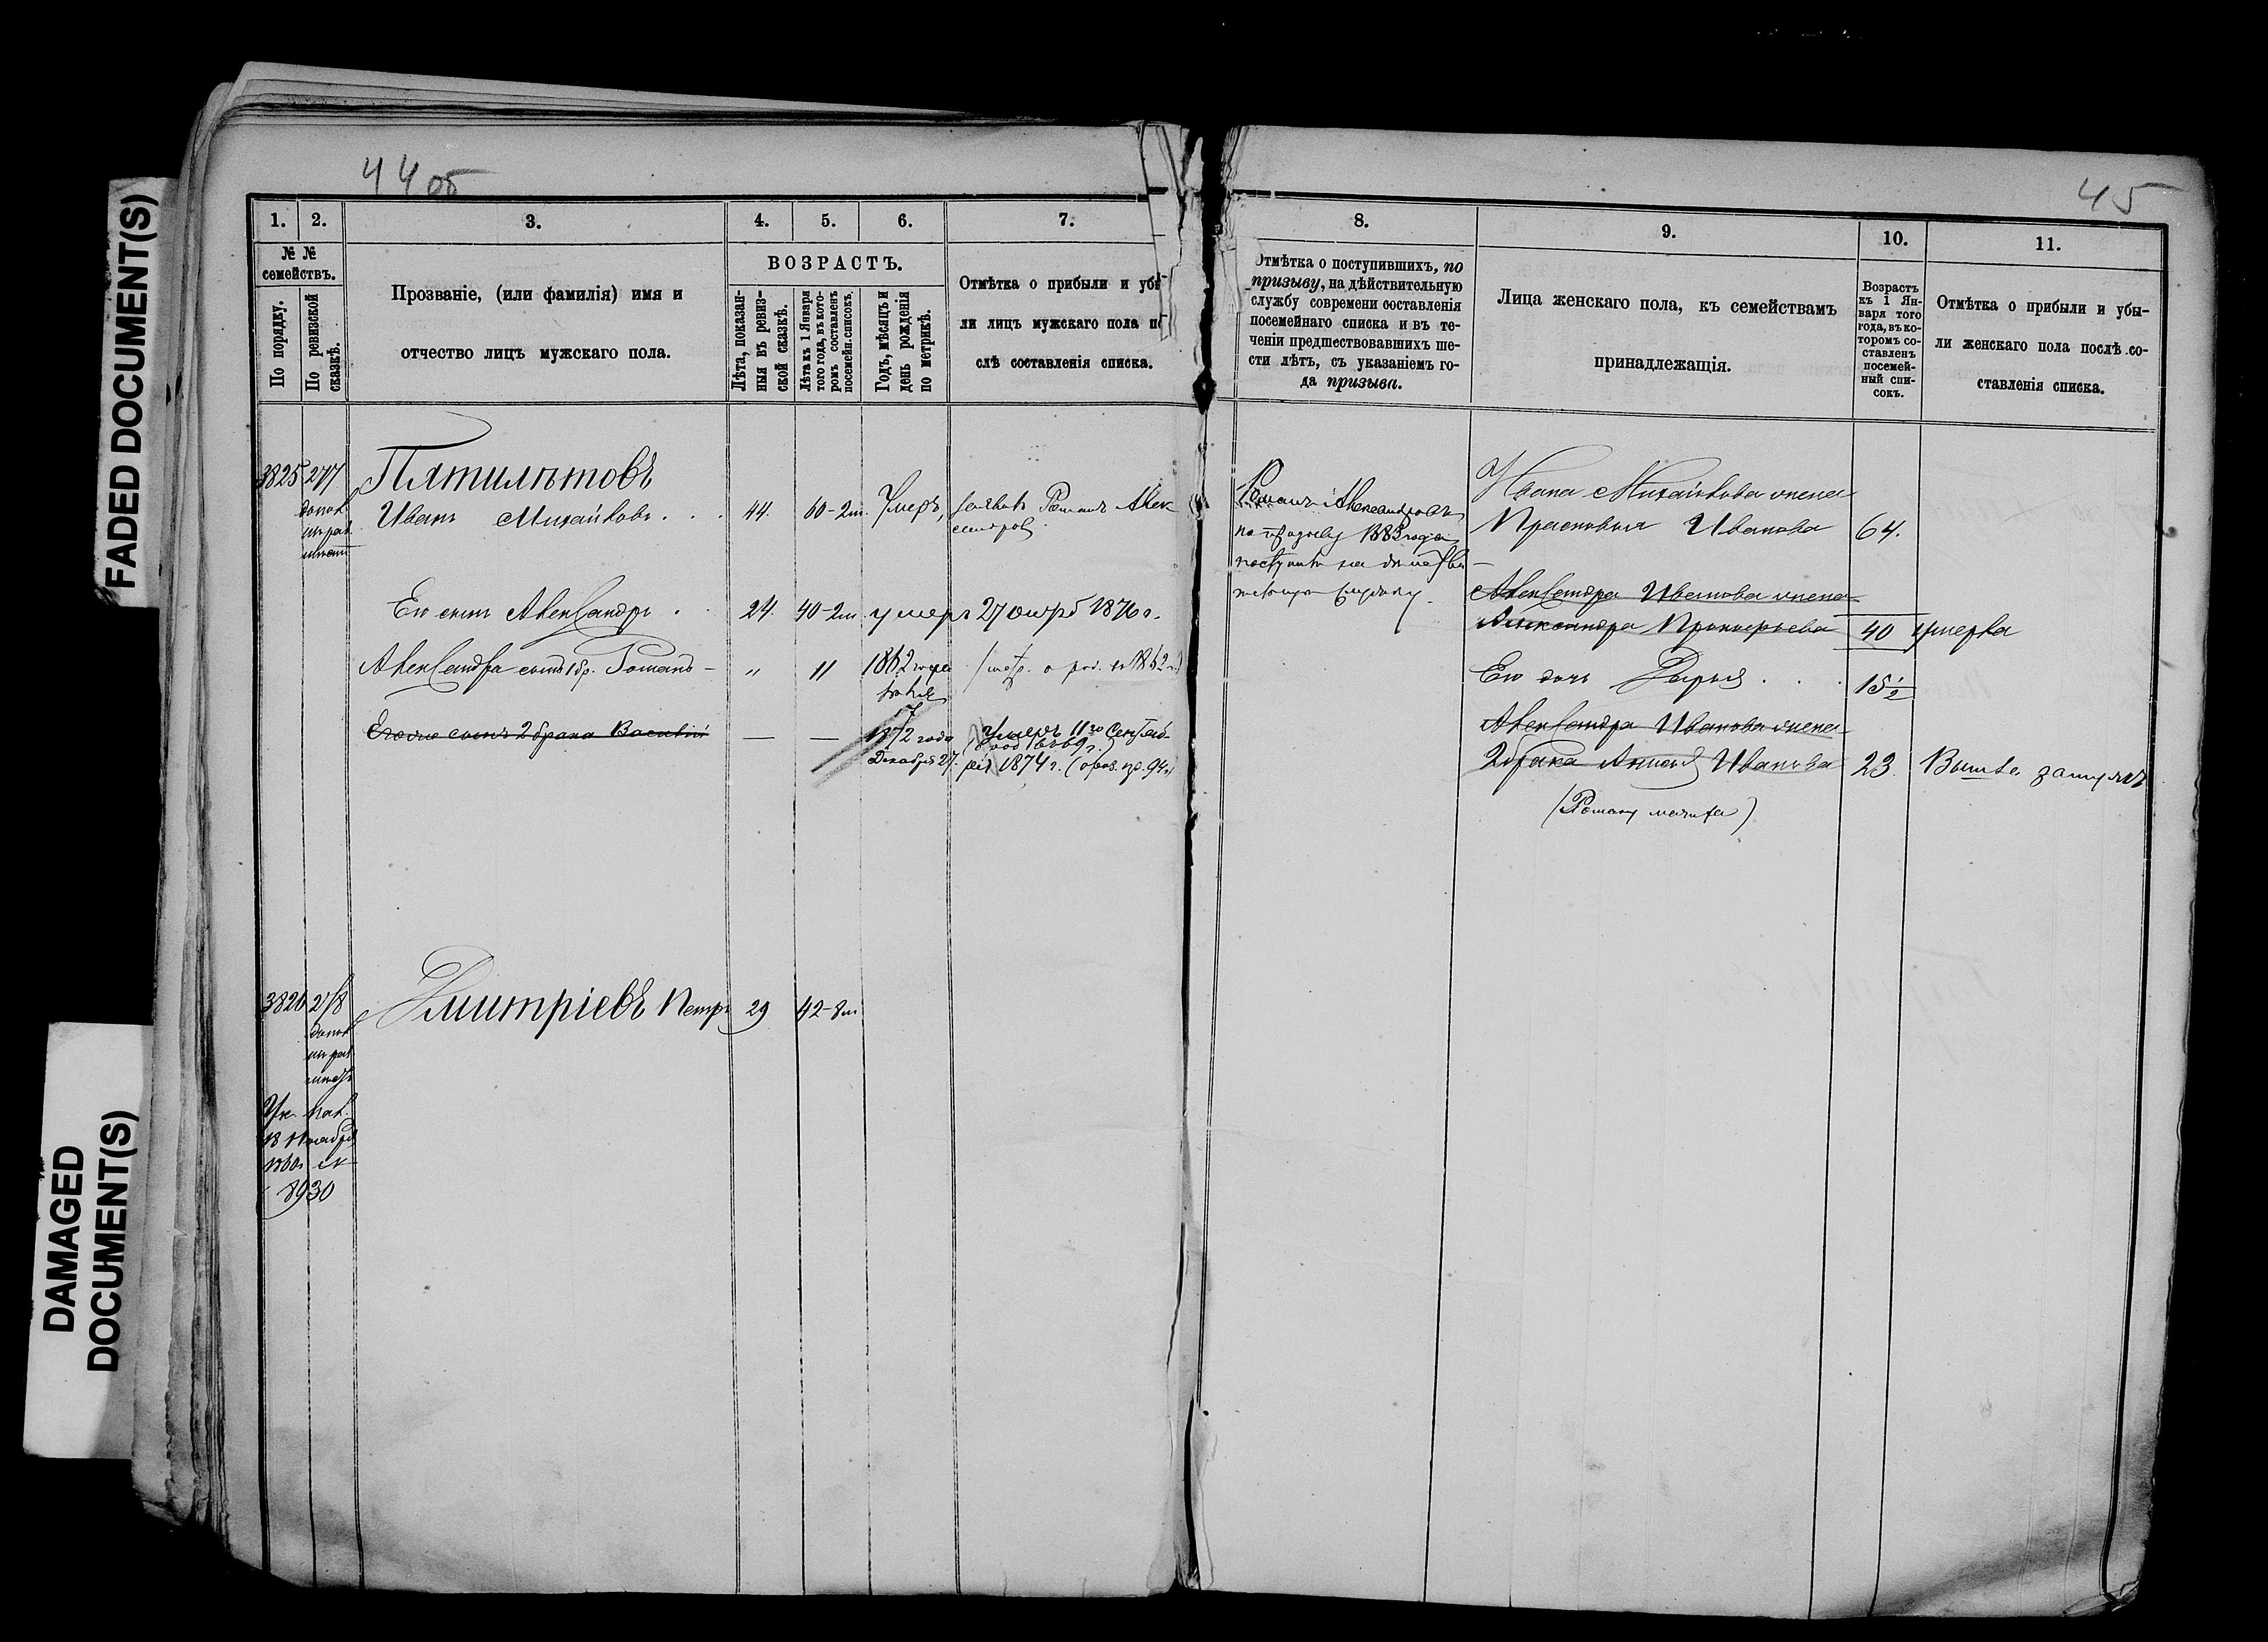 FADED DOCUMENT(S)
DAMAGED
DOCUMENT(S)
44 об
1.
2.
3.
4.
5.
6.
7.
№ №
семействъ.
По порядку.
По ревизской
сказкѣ.
Прозваніе, (или фамилія) имя и
отчество лицъ мужскаго пола.
ВОЗРАСТЪ.
Лѣта, показан-
ныя въ ревиз-
ской сказкѣ.
Лѣта къ 1 Января
того года, въ кото-
ромъ составленъ
посемейн. списокъ.
Годъ, мѣсяцъ и
день рожденія
по метрикѣ.
Отмѣтка о прибыли и убы
ли лицъ мужскаго пола по
слѣ составленія списка.
3825
217
Пятилѣтовъ
Иванъ Михайловъ . . .
44.
60-2м.
Умеръ,
Роман Алек
сандров
Его сынъ Александръ . .
24.
40-2м.
умеръ 27 1876 г.
Александра сынъ 1 бр. Романъ –
"
11
1862 года
Его же сынъ 2 брака Василій
—
—
1872 года
Декабря 27.
Умеръ 11го Сентяб-
ря 1874 г.
3826
218
Дмитріевъ Петръ
29
42-8м
18 Ноября
8930
45
8.
9.
10.
11.
Отмѣтка о поступившихъ, по
призыву, на дѣйствительную
службу современи составленія
посемейнаго списка и въ те-
ченіи предшествовавшихъ ше-
сти лѣтъ, съ указаніемъ го-
да призыва.
Лица женскаго пола, къ семействамъ
принадлежащія.
Возрастъ
къ 1 Ян-
варя того
года, въ ко-
торомъ со-
ставленъ
посемей-
ный спи-
сокъ.
Отмѣтка о прибыли и убы-
ли женскаго пола послѣ со-
ставленія списка.
Романъ Александровъ
по призыву 1883 года
поступилъ на дѣйстви
тельную службу.
Ивана Михайлова жена
Прасковья Иванова
64.
Александра Иванова жена
Александра Прокофьева
40
умерла
Его дочь Дарья . . .
15 1/2
Александра Иванова жена
2 брака Иванова
23.
Вышла замужъ
(Роману мачиха)